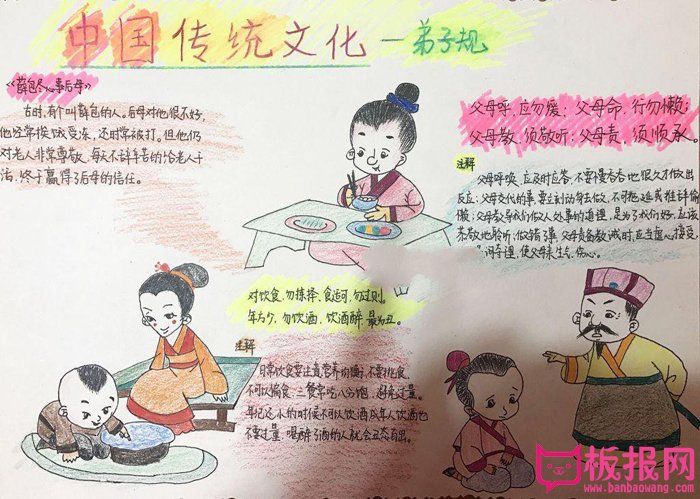 中国传统文化—弟子规
《薛包尽心事后母》
古时,有个叫薛包的人。后母对他很不好,
他经常挨饿受冻,还时常被打。但他仍
对老人非常尊敬,每天不辞辛苦的给老人干
活,终于赢得了后母的信任。
父母呼,应勿缓;父母命,行勿懒;
父母教,须敬听;父母责,须顺承。
注解
父母呼唤,应及时应答,不要慢吞吞地很久才做出
反应;父母交代的事要立刻动身去做,不可拖延或推辞偷
懒;父母教导我们做人处事的道理,是为了我们好,应该
恭敬地聆听;做错事,父母责备教诫时,应当虚心接受,
使父母生气、伤心。
对饮食,勿拣择,食适可,勿过则。
年方少,勿饮酒,饮酒醉,最为丑。
注解
日常饮食要注意营养均衡,不要挑食,
不可以偏食,三餐常吃八分饱,避免过量。
年纪还小的时候不可以饮酒,成年人饮酒也
不要过量,喝醉了酒的人就会丑态百出。
板报网
www.banbaowang.com